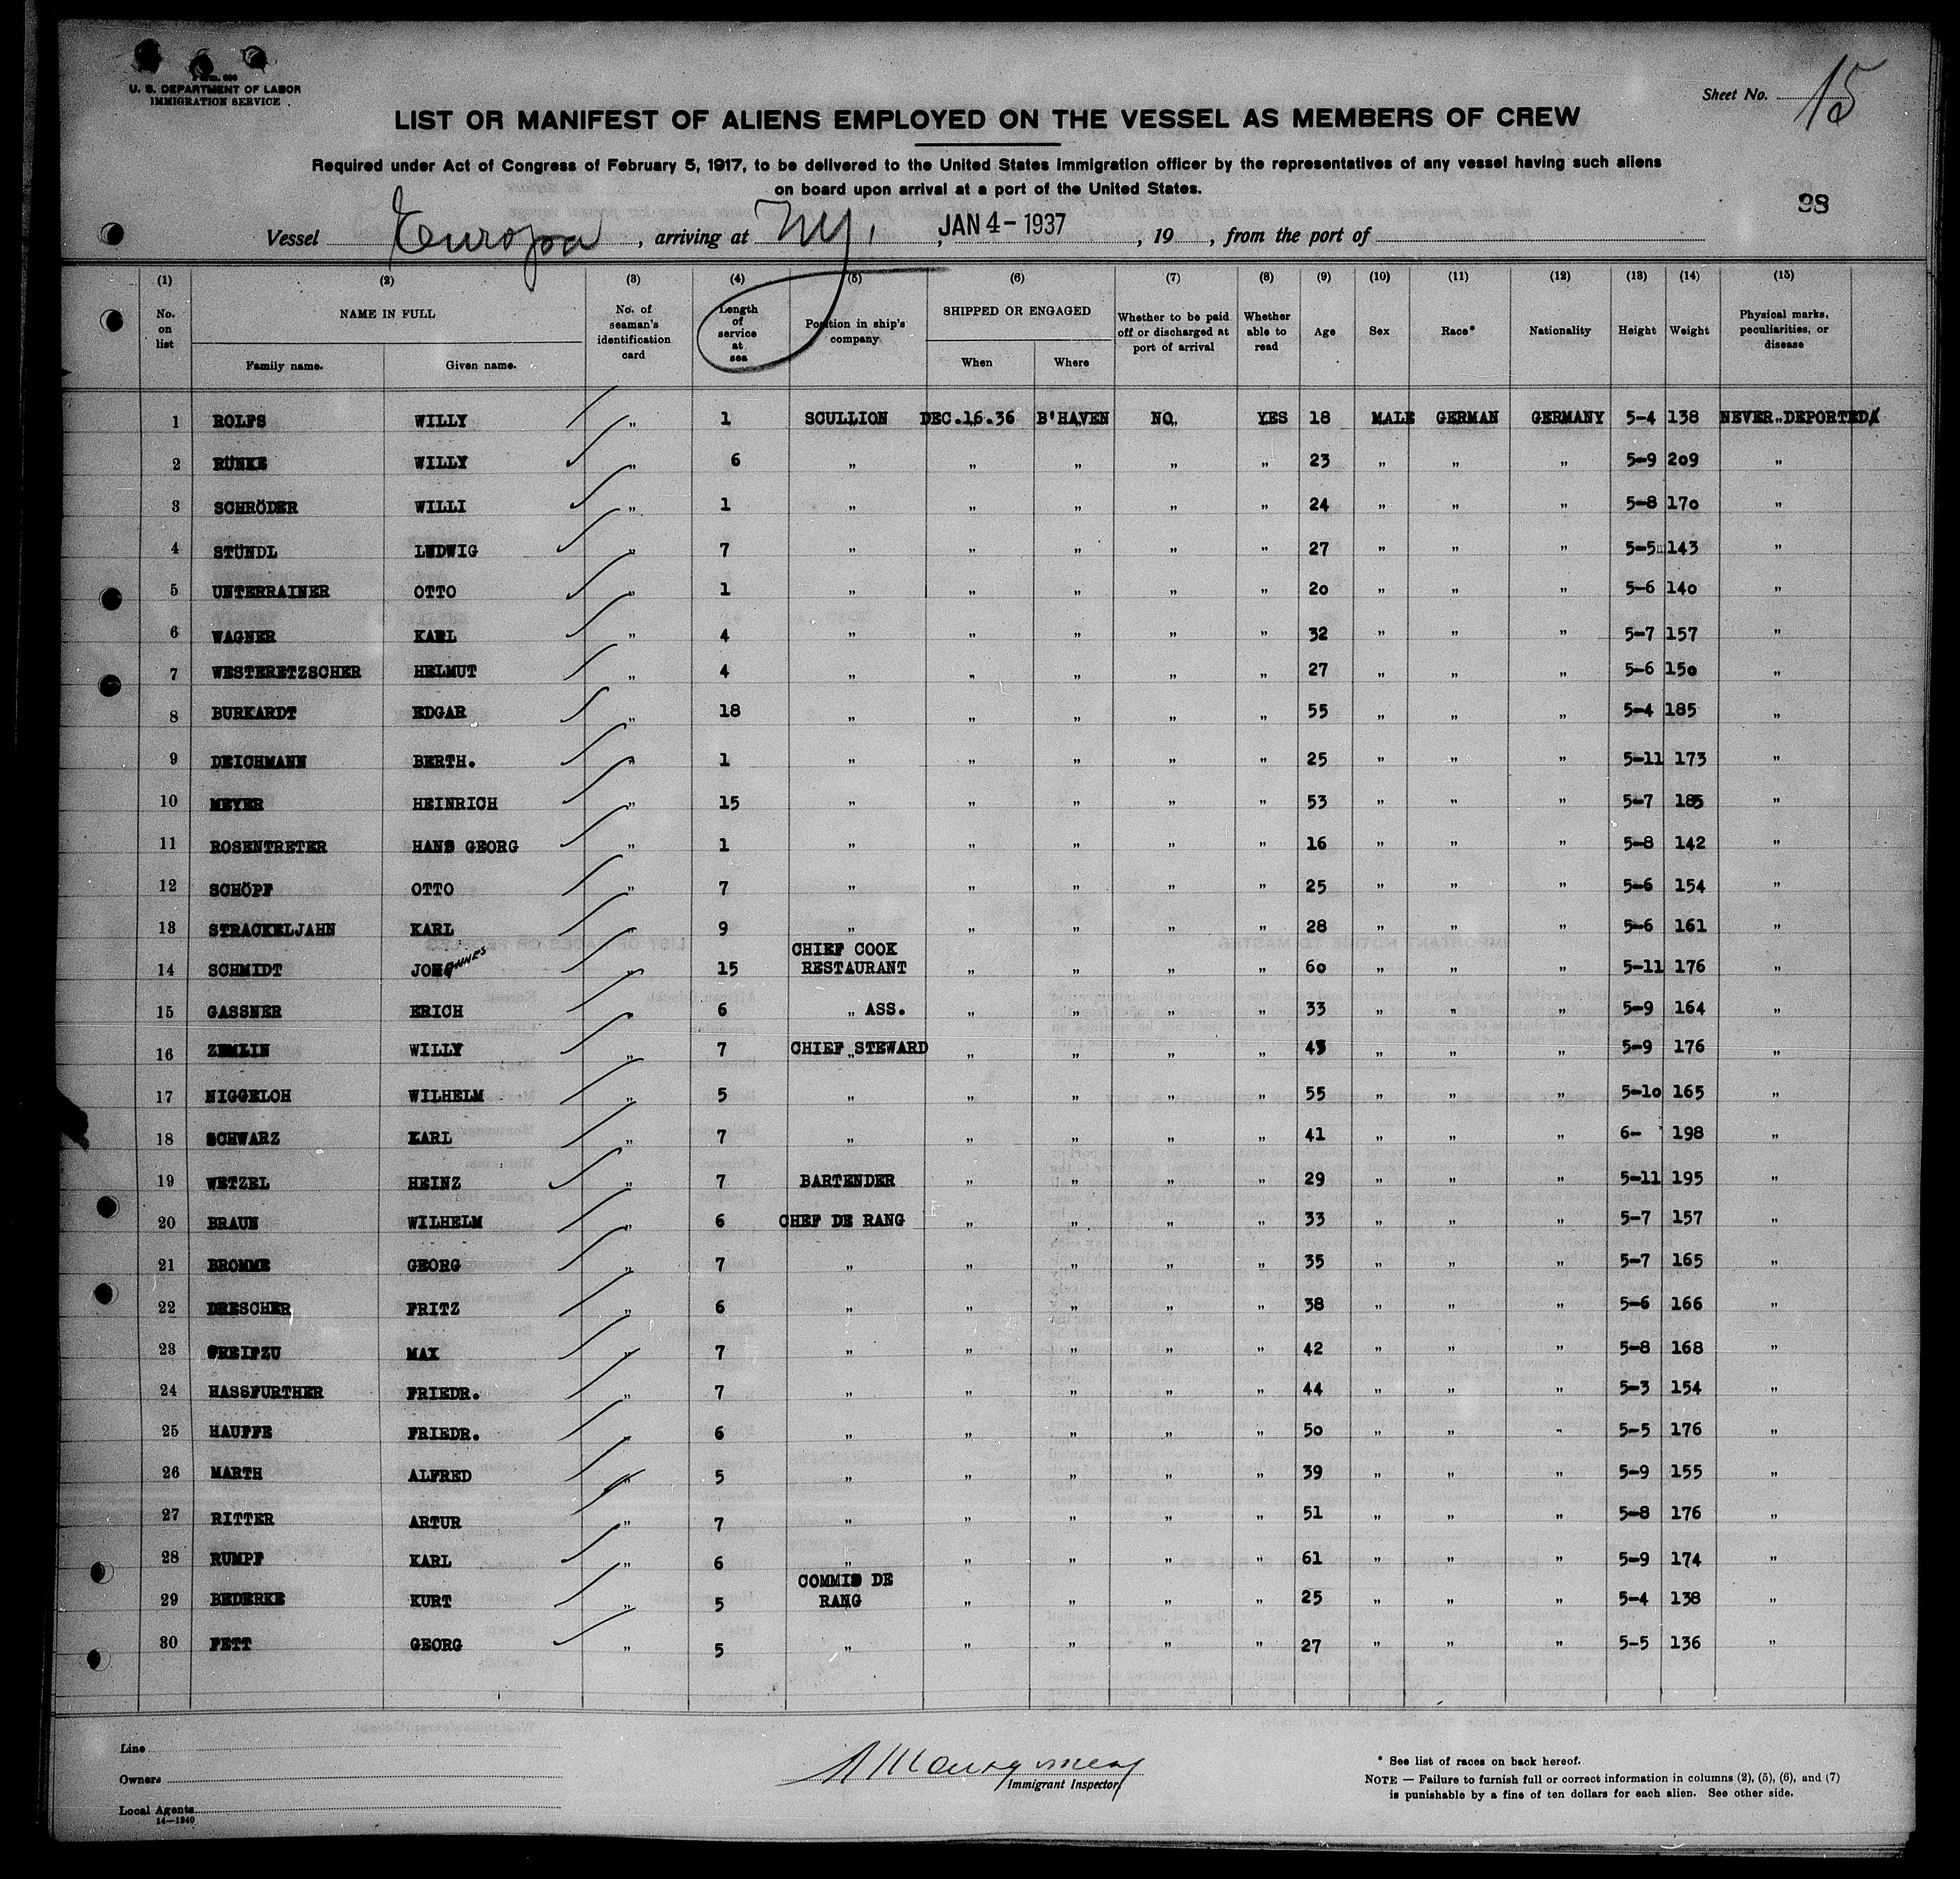 Form 680
U. S. DEPARTMENT OF LABOR
IMMIGRATION SERVICE
Sheet No. 15
LIST OR MANIFEST OF ALIENS EMPLOYED ON THE VESSEL AS MEMBERS OF CREW
Required under Act of Congress of February 5, 1917, to be delivered to the United States immigration officer by the representatives of any vessel having such aliens
on board upon arrival at a port of the United States.
98
Vessel Europa, arriving at NY., JAN 4 - 1937, 19, from the port of
(1) (2) (3) (4) (5) (6) (7) (8) (9) (10) (11) (12) (13) (14) (15)
No. on list NAME IN FULL Family name. Given name. No. of seaman's identification card Length of service at sea Position in ship's company SHIPPED OR ENGAGED When Where Whether to be paid off or discharged at port of arrival Whether able to read Age Sex Race* Nationality Height Weight Physical marks, peculiarities, or disease
1 ROLFS WILLY „ 1 SCULLION DEC.16.36 B'HAVEN NO „ YES 18 MALE GERMAN GERMANY 5-4 138 NEVER DEPORTED
2 RÜNKE WILLY „ 6 „ „ „ „ „ 23 „ „ „ 5-9 209 „
3 SCHRÖDER WILLI „ 1 „ „ „ „ „ 24 „ „ „ 5-8 170 „
4 STÜNDL LUDWIG „ 7 „ „ „ „ „ 27 „ „ „ 5-5 143 „
5 UNTERRAINER OTTO „ 1 „ „ „ „ „ 20 „ „ „ 5-6 140 „
6 WAGNER KARL „ 4 „ „ „ „ „ 32 „ „ „ 5-7 157 „
7 WESTERETZSCHER HELMUT „ 4 „ „ „ „ „ 27 „ „ „ 5-6 150 „
8 BURKARDT EDGAR „ 18 „ „ „ „ „ 55 „ „ „ 5-4 185 „
9 DEICHMANN BERTH. „ 1 „ „ „ „ „ 25 „ „ „ 5-11 173 „
10 MEYER HEINRICH „ 15 „ „ „ „ „ 53 „ „ „ 5-7 185 „
11 ROSENTRETER HANS GEORG „ 1 „ „ „ „ „ 16 „ „ „ 5-8 142 „
12 SCHÖPF OTTO „ 7 „ „ „ „ „ 25 „ „ „ 5-6 154 „
13 STRACKELJAHN KARL „ 9 „ „ „ „ „ 28 „ „ „ 5-6 161 „
14 SCHMIDT JOHANNES „ 15 CHIEF COOK RESTAURANT „ „ „ „ 60 „ „ „ 5-11 176 „
15 GASSNER ERICH „ 6 „ ASS. „ „ „ „ 33 „ „ „ 5-9 164 „
16 ZEMLIN WILLY „ 7 CHIEF STEWARD „ „ „ „ 43 „ „ „ 5-9 176 „
17 NIGGELOH WILHELM „ 5 „ „ „ „ „ 55 „ „ „ 5-10 165 „
18 SCHWARZ KARL „ 7 „ „ „ „ „ 41 „ „ „ 6- 198 „
19 WETZEL HEINZ „ 7 BARTENDER „ „ „ „ 29 „ „ „ 5-11 195 „
20 BRAUN WILHELM „ 6 CHEF DE RANG „ „ „ „ 33 „ „ „ 5-7 157 „
21 BROMME GEORG „ 7 „ „ „ „ „ 35 „ „ „ 5-7 165 „
22 DRESCHER FRITZ „ 6 „ „ „ „ „ 38 „ „ „ 5-6 166 „
23 FREIPZU MAX „ 7 „ „ „ „ „ 42 „ „ „ 5-8 168 „
24 HASSFURTHER FRIEDR. „ 7 „ „ „ „ „ 44 „ „ „ 5-3 154 „
25 HAUFFE FRIEDR. „ 6 „ „ „ „ „ 50 „ „ „ 5-5 176 „
26 MARTH ALFRED „ 5 „ „ „ „ „ 39 „ „ „ 5-9 155 „
27 RITTER ARTUR „ 7 „ „ „ „ „ 51 „ „ „ 5-8 176 „
28 RUMPF KARL „ 6 „ „ „ „ „ 61 „ „ „ 5-9 174 „
29 BEDERKE KURT „ 5 COMMIS DE RANG „ „ „ „ 25 „ „ „ 5-4 138 „
30 FETT GEORG „ 5 „ „ „ „ „ 27 „ „ „ 5-5 136 „
Line
Owners
Local Agents
14—1240
Immigrant Inspector
* See list of races on back hereof.
NOTE — Failure to furnish full or correct information in columns (2), (5), (6), and (7)
is punishable by a fine of ten dollars for each alien. See other side.